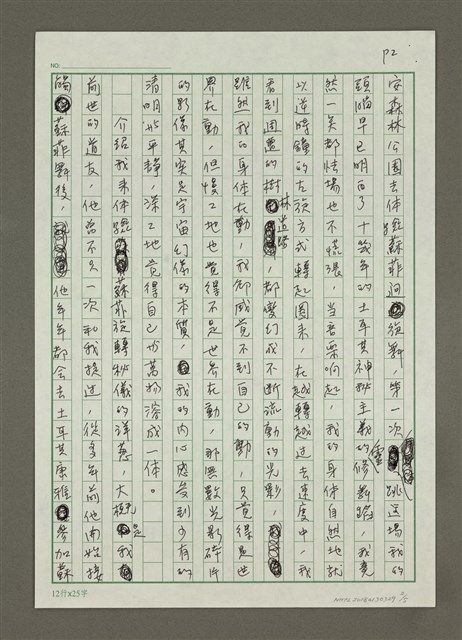 P2
NO:
安森林公園去体驗蘇菲旋舞,第一次跳這場我的
頭腦早已明白了十幾年的土耳其神秘主義的修靈舞蹈,我竟
然一点都怯場也不慌張,当音樂响起,我的身体自然地就
以逆時鐘的左旋方式轉起圈來,在越轉越过去速度中,我
看到週邊的樹林道路,都變幻成不断流動的光影,
雖然我的身体在動,我卻感覺不到自己的動,只覺得是世
界在動,但慢工地也覺得不是世界在動,那無數光影碎片
的影像其實是宇宙幻像的本質,我的内心感受到少有的
清明洪平靜,深工地覺得自己与萬物溶成一体。
介紹我来体驗蘇菲旋轉秘儀的洋蔥,大概是我
前世的道友,他曾不只一次和我提过,從多年前他開始接
觸蘇菲舞後,他年年都会去土耳其康雅參加蘇
12行x25字